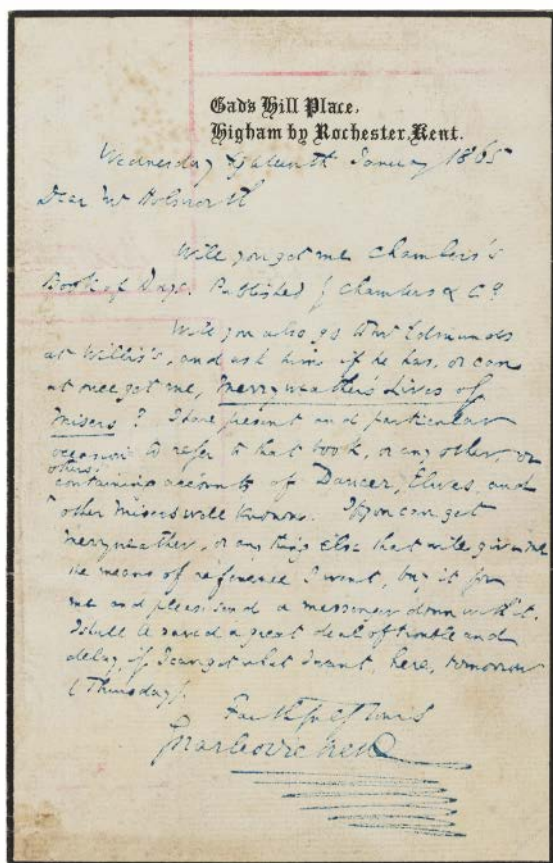 Gad's Hill Place,
Higham by Rochester, Kent.
Wednesday Eighteenth January 1865
Dear Mr Holsworth
Will you get me Chambers's
Book of Days. Published by Chambers & Co?
Will you also go to Mr Edmunds
at Willis's, and ask him if he has, or can
at once get me, Merryweather's Lives of
Misers? I have present and particular
occasion to refer to that book, or any other, or
others, containing accounts of Dancer, Elwes, and
other Misers well known. If you can get
Merryweather, or any thing else that will give me
the means of reference I want, buy it for
me and please send a messenger down with it.
I shall be saved a great deal of trouble and
delay, if I can get what I want, here, tomorrow
(Thursday).
Faithfully Yours
Charles Dickens